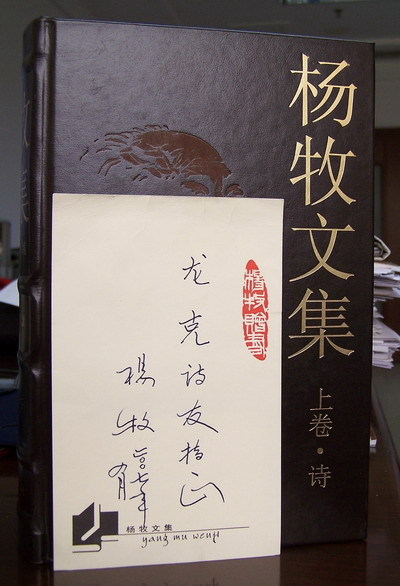 杨牧文集
上卷·诗
龙克诗友指正
楊牧
楊牧贈書
杨牧文集
yang mu wenji